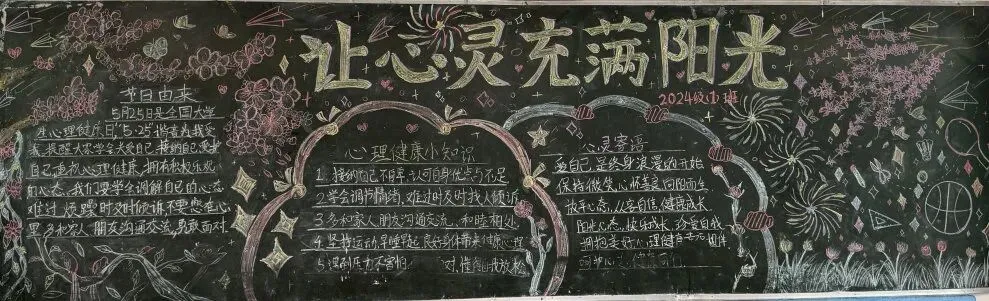 让心灵充满阳光
2024级 班
节日由来
5月25日是全国大学
生心理健康日,"5.25"谐音为我爱
我,提醒大家学会关爱自己,接纳自己,重视
自己 心理健康,拥有积极乐观
的心态。我们要学会调解自己的心态
难过、烦躁时及时倾诉,不要憋在心
里,多和家人、朋友沟通交流,勇敢面对.
心理健康小知识
1.接纳自己不自卑,认可自身优点与不足
2.学会调节情绪,难过时及时找人倾诉
3.多和家人朋友沟通交流、和睦相处
4.坚持运动,早睡早起,良好身体带来健康心理
5.遇到压力不害怕 对,懂得自我放松
心灵寄语
爱自己是终身浪漫的开始
保持微笑,心怀善良,向阳而生
放平心态,从容自信,健康成长
阳光心态、快乐成长、珍爱自我
拥抱美好心理健康